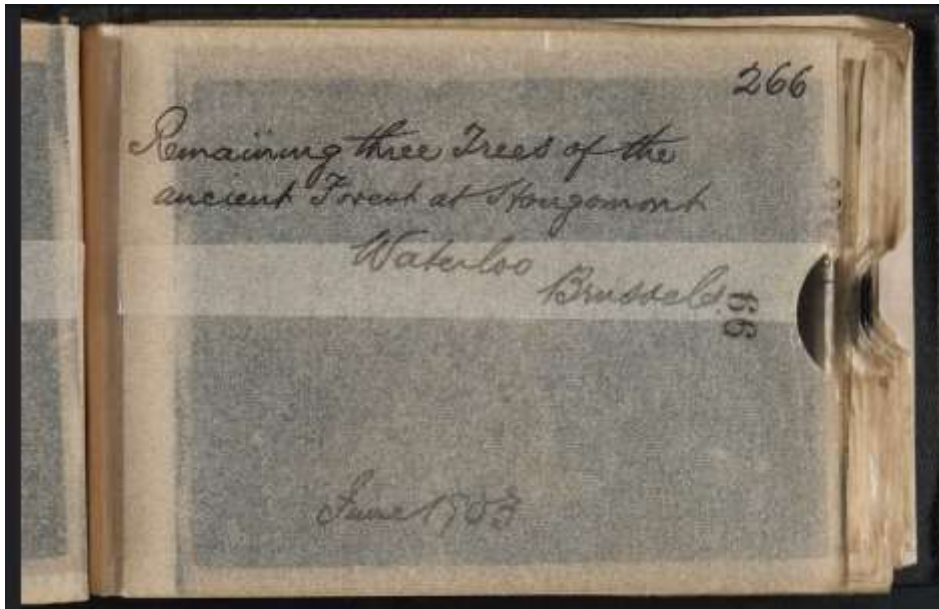 266
Remaining three Trees of the
ancient Forest at Hougomont
Waterloo
Brussels.
66
June 1903